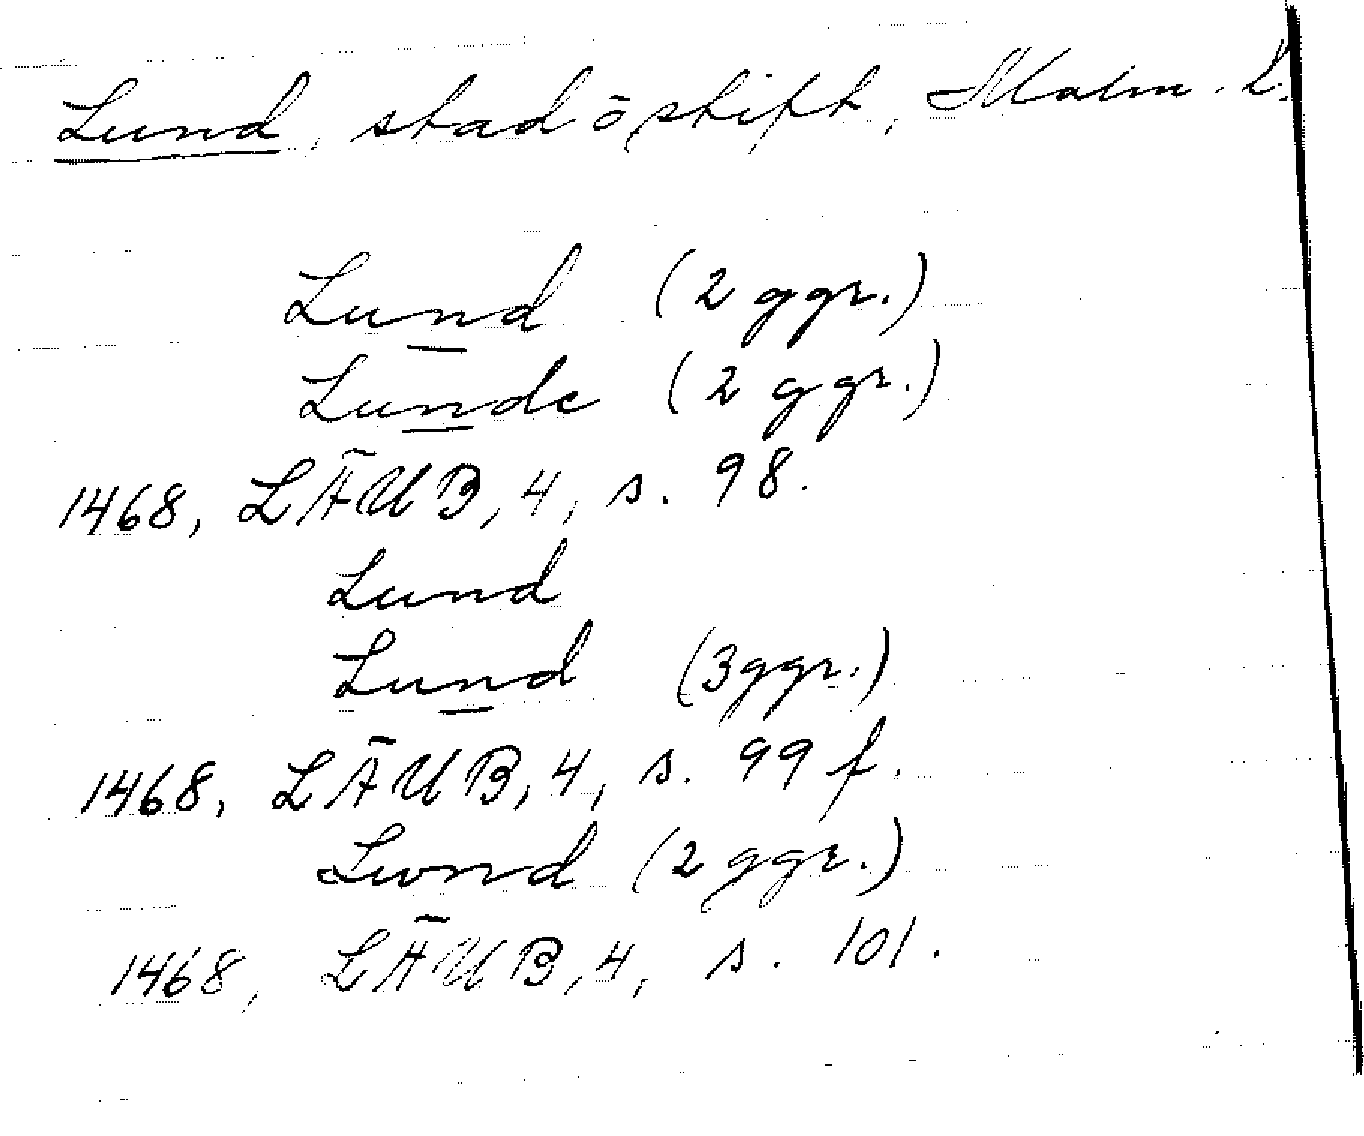 Lund, stad o stift, Malm. L.
Lund (2 ggr.)
Lunde (2 ggr.)
1468, LÄUB, 4, s. 98.
Lund
Lund (3 ggr.)
1468, LÄUB, 4, s. 99 f.
Lwnd (2 ggr.)
1468, LÄUB, 4, s. 101.